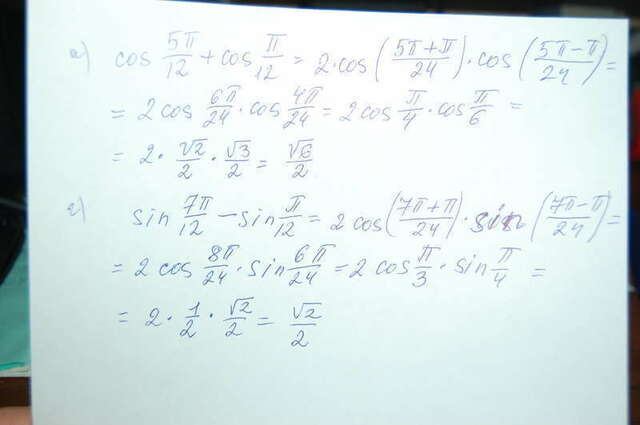 а) cos 5π/12 + cos π/12 = 2·cos((5π+π)/24)·cos((5π-π)/24) =
= 2cos 6π/24 · cos 4π/24 = 2cos π/4 · cos π/6 =
= 2 · √2/2 · √3/2 = √6/2
г) sin 7π/12 - sin π/12 = 2cos((7π+π)/24)·sin((7π-π)/24) =
= 2cos 8π/24 · sin 6π/24 = 2cos π/3 · sin π/4 =
= 2 · 1/2 · √2/2 = √2/2